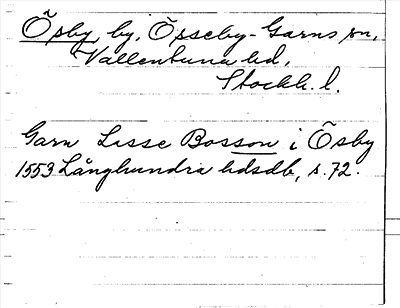 Õsby by, Össeby-Garns sn,
Vallentuna hd,
Stockh. l.
Garn Lisse Bosson i Õsby
1553 Långhundra hdsdb, s. 72.